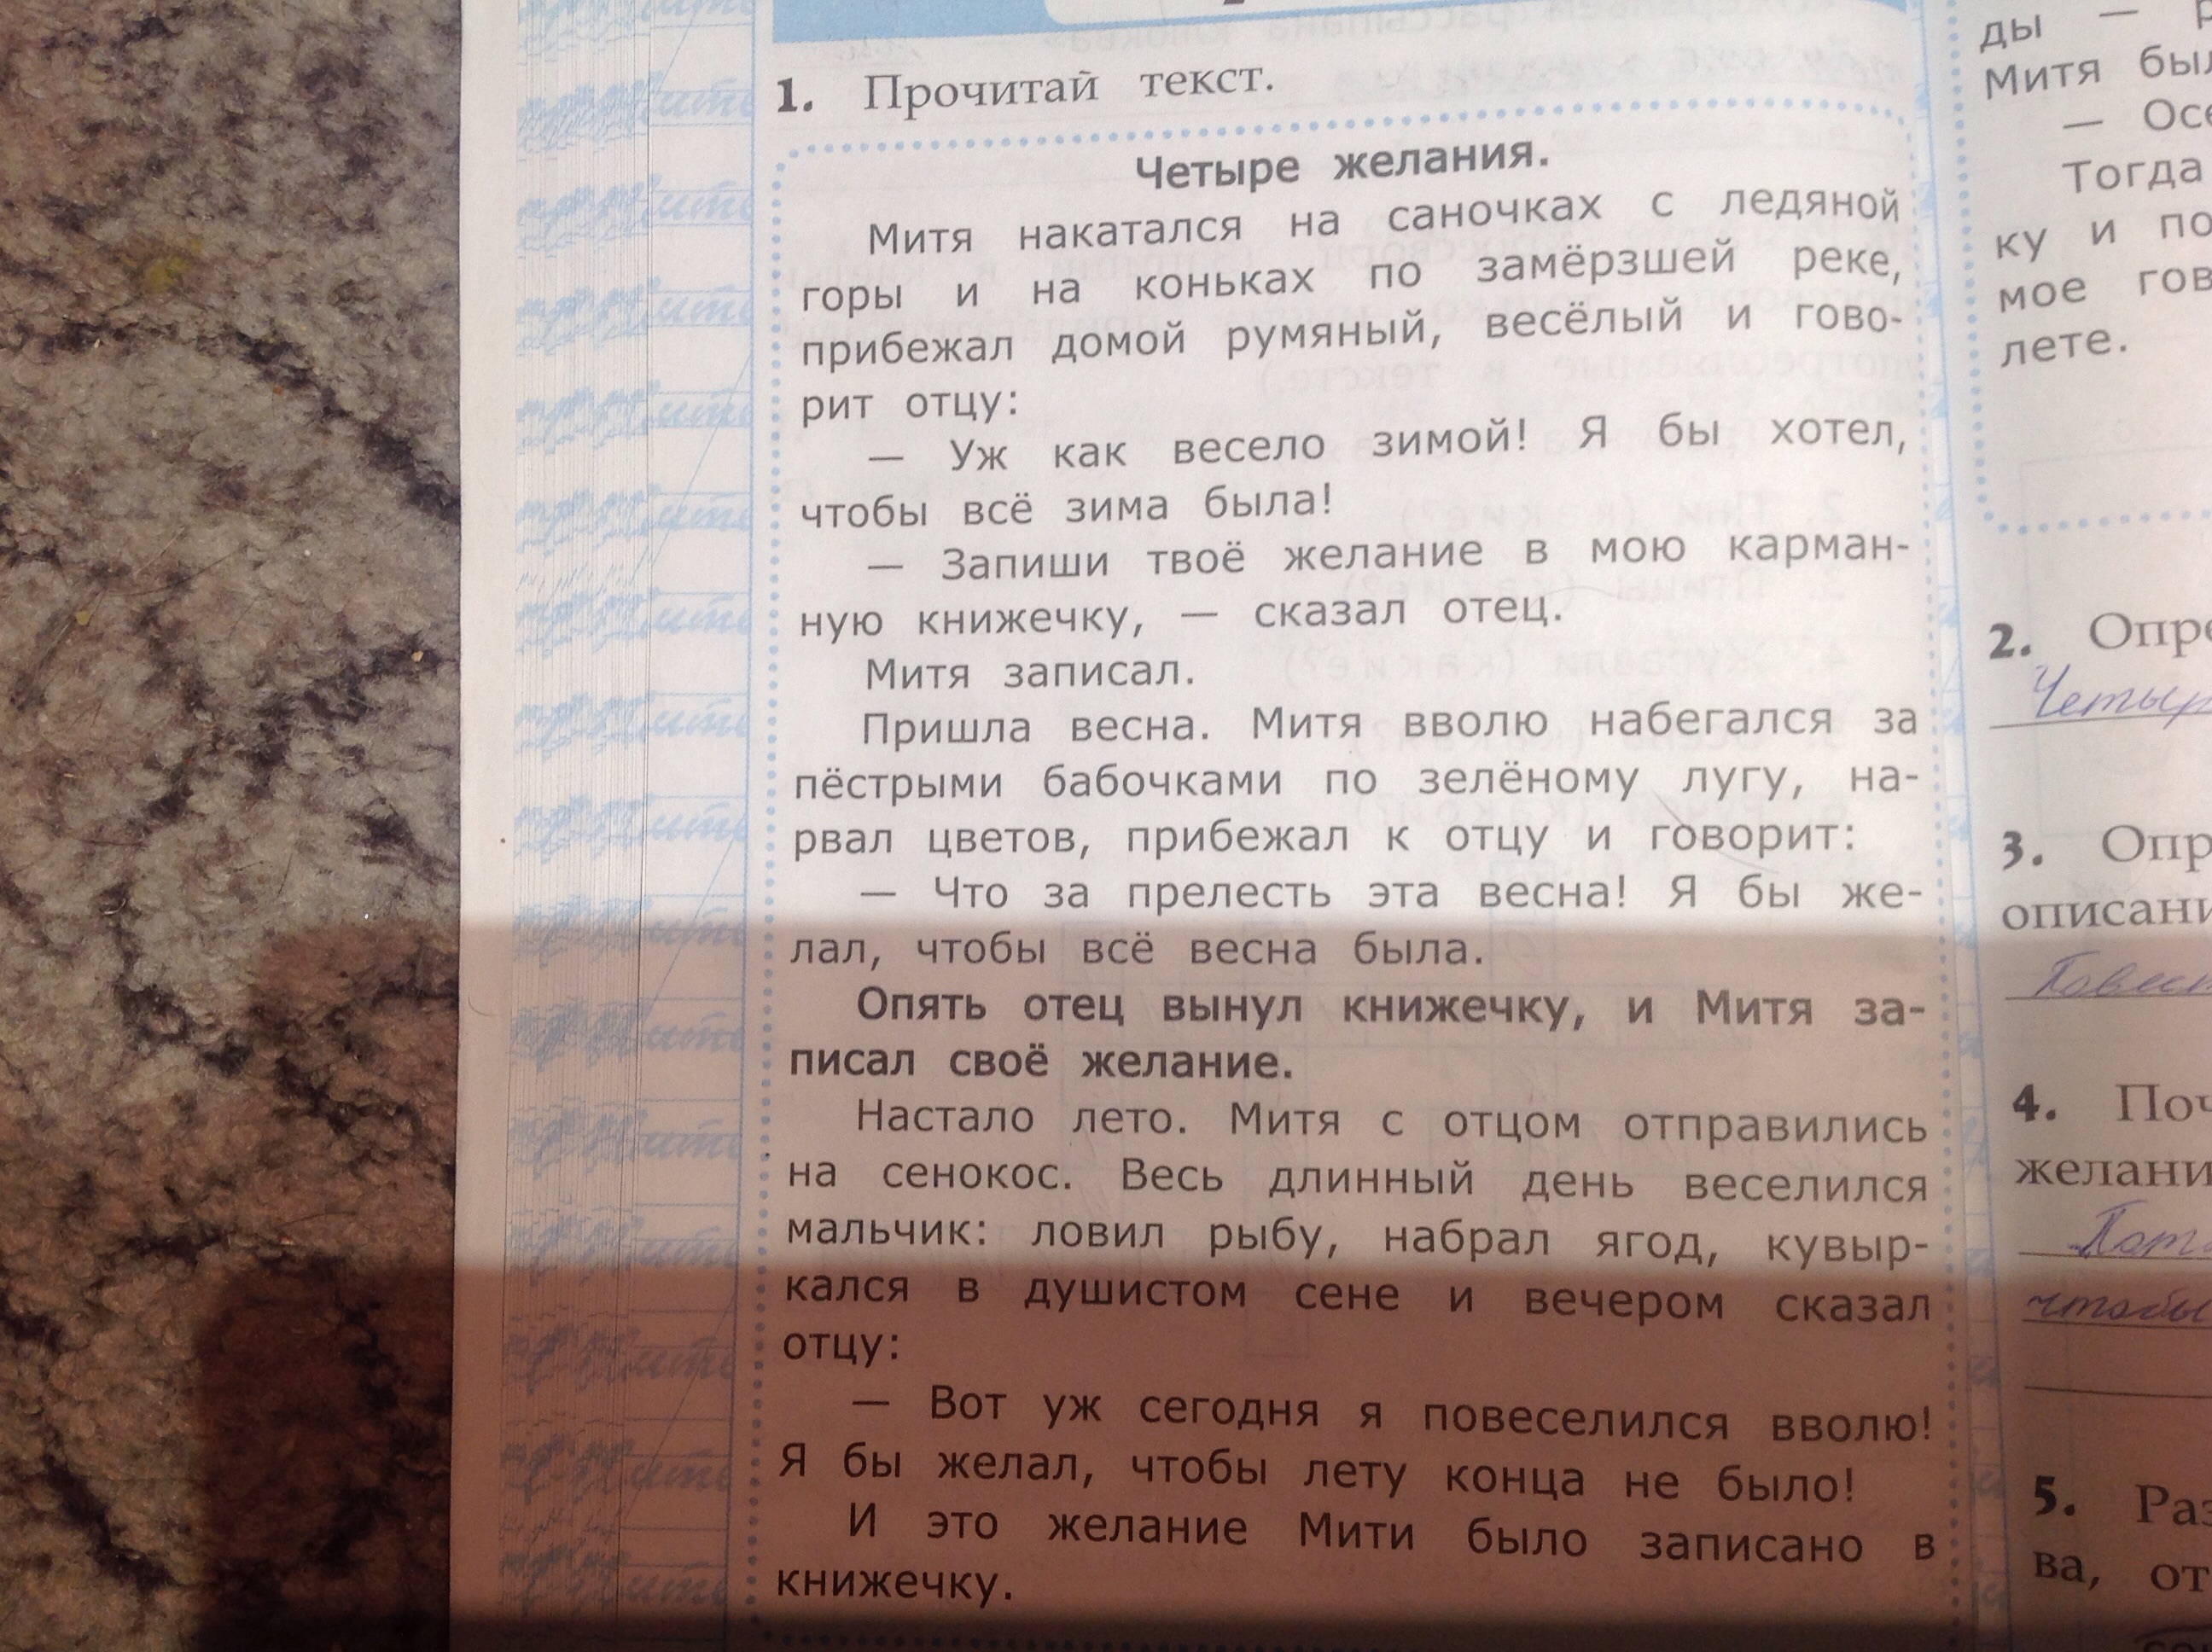 1. Прочитай текст.
Четыре желания.
Митя накатался на саночках с ледяной
горы и на коньках по замёрзшей реке,
прибежал домой румяный, весёлый и гово-
рит отцу:
— Уж как весело зимой! Я бы хотел,
чтобы всё зима была!
— Запиши твоё желание в мою карман-
ную книжечку, — сказал отец.
Митя записал.
Пришла весна. Митя вволю набегался за
пёстрыми бабочками по зелёному лугу, на-
рвал цветов, прибежал к отцу и говорит:
— Что за прелесть эта весна! Я бы же-
лал, чтобы всё весна была.
Опять отец вынул книжечку, и Митя за-
писал своё желание.
Настало лето. Митя с отцом отправились
на сенокос. Весь длинный день веселился
мальчик: ловил рыбу, набрал ягод, кувыр-
кался в душистом сене и вечером сказал
отцу:
— Вот уж сегодня я повеселился вволю!
Я бы желал, чтобы лету конца не было!
И это желание Мити было записано в
книжечку.
ды —
Митя
—
Тогда
ку и
мое
лете.
2.
3.
4.
чтобы
5.
ва,